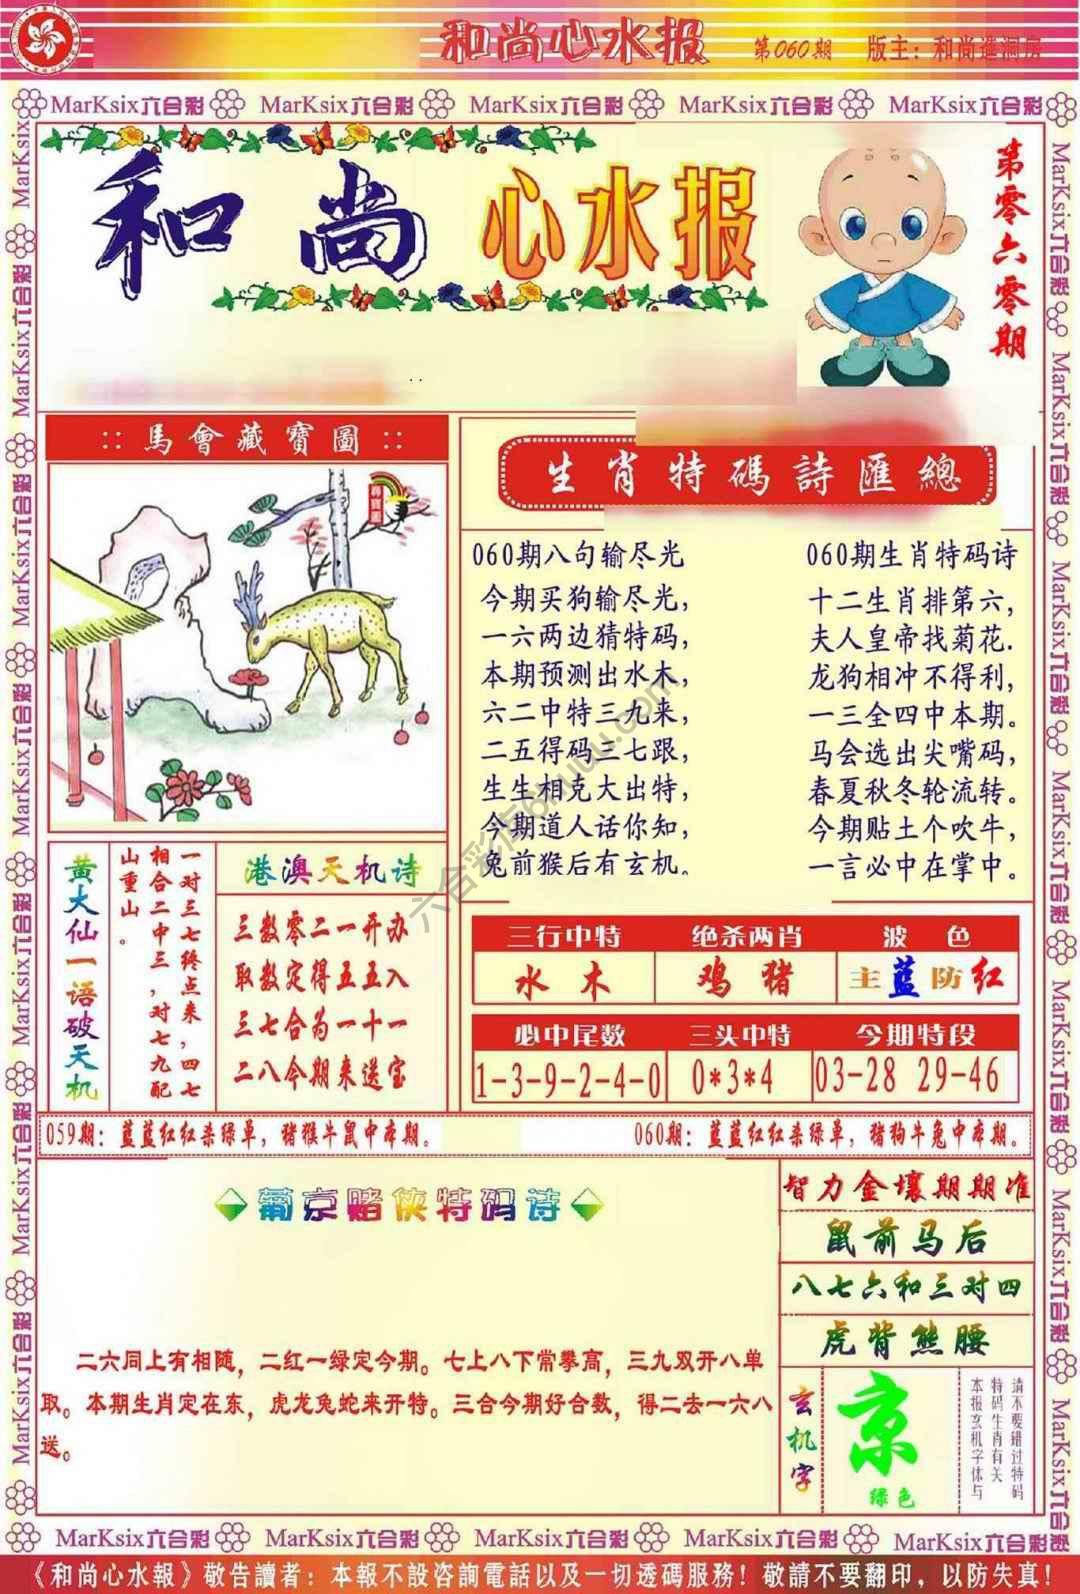 和尚心水报 第060期 版主：和尚進洞房
MarKsix六合彩 MarKsix六合彩 MarKsix六合彩 MarKsix六合彩 MarKsix六合彩
和尚心水报
第零六零期
::馬會藏寶圖::
尋寶圖
生肖特碼詩匯總
060期八句输尽光
今期买狗输尽光，
一六两边猜特码，
本期预测出水木，
六二中特三九来，
二五得码三七跟，
生生相克大出特，
今期道人话你知，
兔前猴后有玄机。
060期生肖特码诗
十二生肖排第六，
夫人皇帝找菊花.
龙狗相冲不得利，
一三全四中本期。
马会选出尖嘴码，
春夏秋冬轮流转。
今期贴土个吹牛，
一言必中在掌中。
六合彩库6huuu.com
黄大仙一语破天机
一对三七终点来，四七
相合二中三，对七九配
山重山。
港澳天机诗
三数零二一开办
取数定得五五入
三七合为一十一
二八今期来送宝
三行中特 绝杀两肖 波 色
水 木 鸡 猪 主蓝防红
必中尾数 三头中特 今期特段
1-3-9-2-4-0 0*3*4 03-28 29-46
059期：蓝蓝红红杀绿单，猪猴牛鼠中本期。
060期：蓝蓝红红杀绿单，猪狗牛兔中本期。
葡京赌侠特码诗
二六同上有相随，二红一绿定今期。七上八下常攀高，三九双开八单
取。本期生肖定在东，虎龙兔蛇来开特。三合今期好合数，得二去一六八
送。
智力金壤期期准
鼠前马后
八七六和三对四
虎背熊腰
玄机字
京
绿色
请不要错过特码
特码生肖有关
本报玄机字体与
MarKsix六合彩 MarKsix六合彩 MarKsix六合彩 MarKsix六合彩 MarKsix六合彩
《和尚心水報》敬告讀者：本報不設咨詢電話以及一切透碼服務！敬請不要翻印，以防失真！